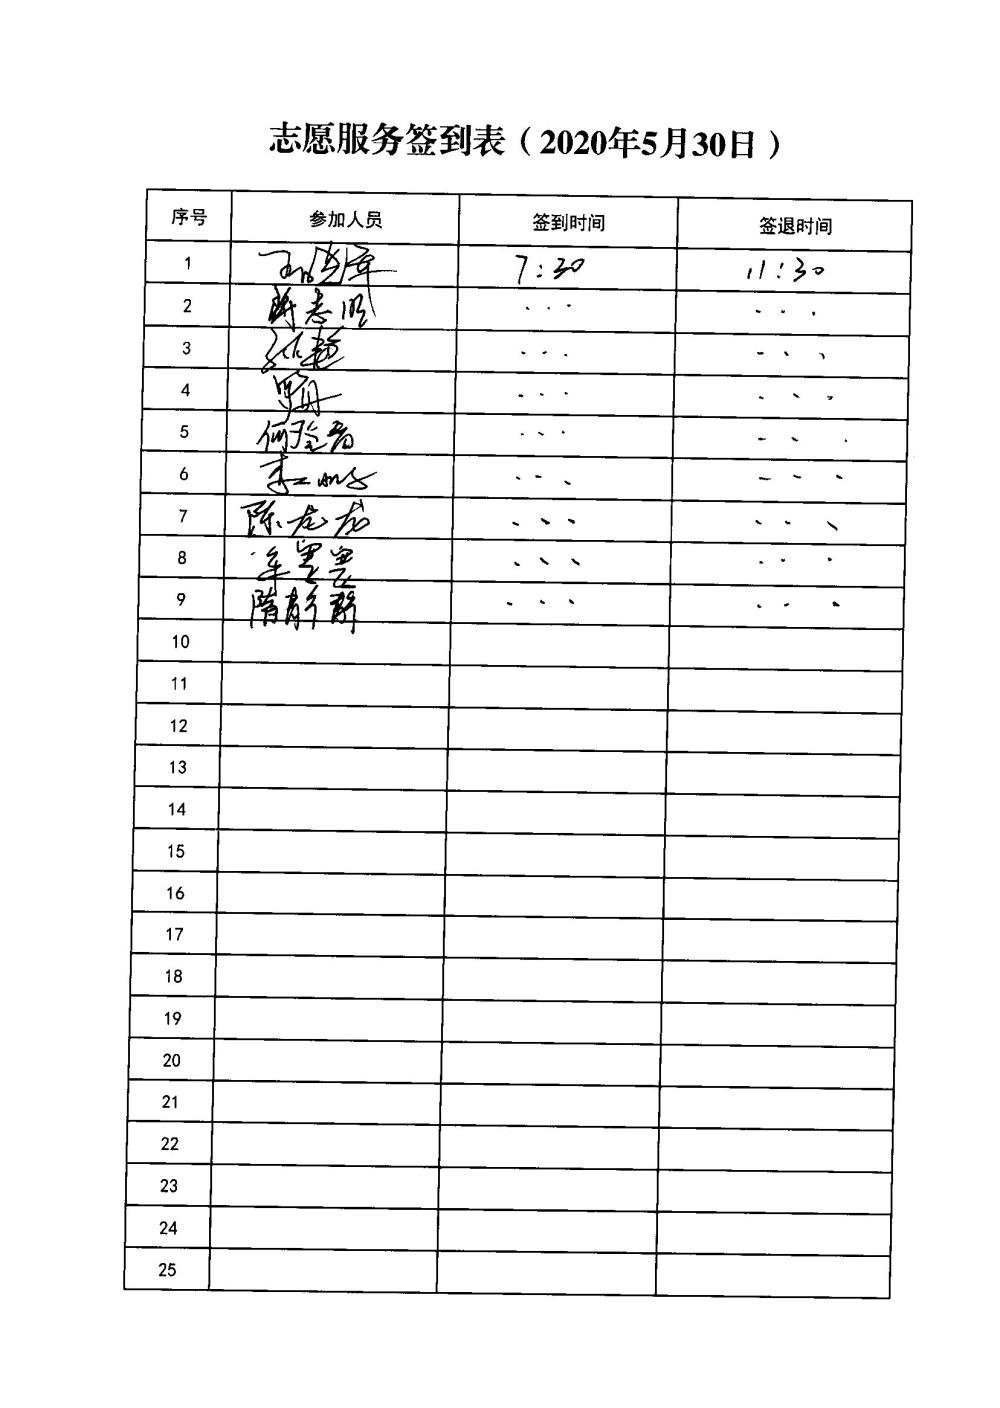 志愿服务签到表（2020年5月30日）
序号 参加人员 签到时间 签退时间
1 7:30 11:30
2 陈志明 . . . . . .
3 . . . . . .
4 . . . . . .
5 何 . . . . . .
6 李 . . . . . .
7 陈龙龙 . . . . . .
8 牟墨墨 . . . . . .
9 隋静静 . . . . . .
10
11
12
13
14
15
16
17
18
19
20
21
22
23
24
25